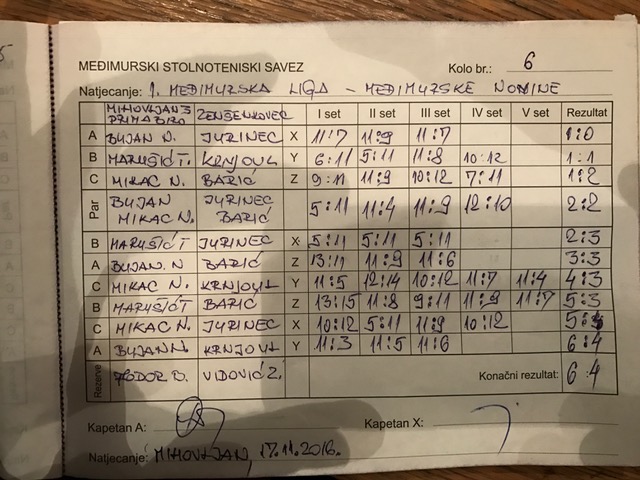 MEĐIMURSKI STOLNOTENISKI SAVEZ Kolo br.: 6
Natjecanje: 1. MEĐIMURSKA LIGA - MEĐIMURSKE NOVINE
MIHOVLJAN 3 PRIMA BIRO ŽENŠENKOVEC I set II set III set IV set V set Rezultat
A BUJAN N. JURINEC X 11:7 11:9 11:7 1:0
B MARUŠIĆ T. KRNJOUL Y 6:11 5:11 11:8 10:12 1:1
C MIKAC N. BARIĆ Z 9:11 11:9 10:12 7:11 1:2
Par BUJAN MIKAC N. JURINEC BARIĆ 5:11 11:4 11:9 12:10 2:2
B MARUŠIĆ T JURINEC X 5:11 5:11 5:11 2:3
A BUJAN. N BARIĆ Z 13:11 11:9 11:6 3:3
C MIKAC N. KRNJOUL Y 11:5 12:14 10:12 11:7 11:4 4:3
B MARUŠIĆ T BARIĆ Z 13:15 11:8 9:11 11:9 11:7 5:3
C MIKAC N. JURINEC X 10:12 5:11 11:9 10:12 5:4
A BUJAN N. KRNJOUL Y 11:3 11:5 11:6 6:4
Rezerve TODOR D. VIDOVIĆ Z. Konačni rezultat: 6:4
Kapetan A: Kapetan X:
Natjecanje: MIHOVLJAN, 17.11.2016.